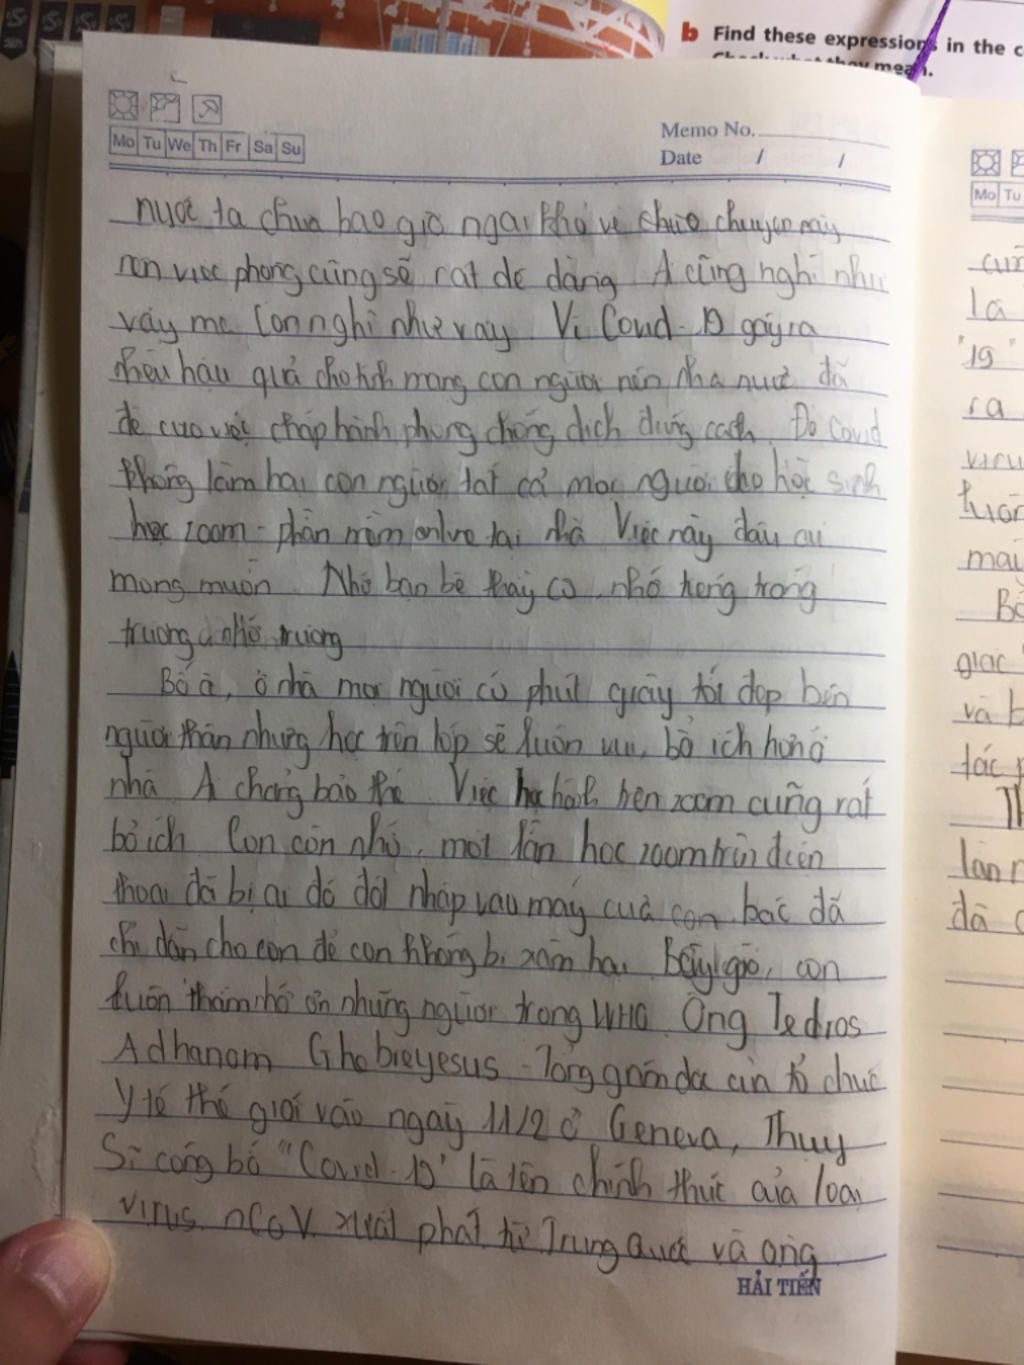 b Find these expressions in the c
Check what they mean.
Memo No.
Mo Tu We Th Fr Sa Su
Date / /
Mo Tu
nước ta chưa bao giờ ngại khó về chuyện này
nên việc phòng cũng sẽ rất dễ dàng A cũng nghĩ như
vậy mà Con nghĩ như vậy. Vì Covid-19 gây ra
nhiều hậu quả cho tính mạng con người nên nhà nước đã
đề cao việc chấp hành phòng chống dịch đúng cách. Do Covid
không làm hại con người tất cả mọi người cho học sinh
học zoom - phần mềm online tại nhà Việc này đâu ai
mong muốn. Nhớ bạn bè thầy cô, nhớ trống trong
trường nhớ trường
Bố à, ở nhà mọi người có phút giây tốt đẹp bên
người thân nhưng học trên lớp sẽ luôn vui, bổ ích hơn ở
nhà A chẳng bảo thế Việc học hành trên zoom cũng rất
bổ ích Con còn nhớ, một lần học zoom trên điện
thoại đã bị ai đó đột nhập vào máy của con bác đã
chỉ dẫn cho con để con không bị xâm hại Bây giờ, con
luôn thầm nhớ ơn những người trong WHO Ông Tedros
Adhanom Ghebreyesus - Tổng giám đốc của tổ chức
Y tế thế giới vào ngày 11/2 ở Geneva, Thuỵ
Sĩ công bố "Covid-19" là tên chính thức của loại
virus nCoV xuất phát từ Trung Quốc và ông
HẢI TIẾN
là
"19"
ra
viru
luôn
máy
Bố
giác
và b
tác
Th
lần
đã c